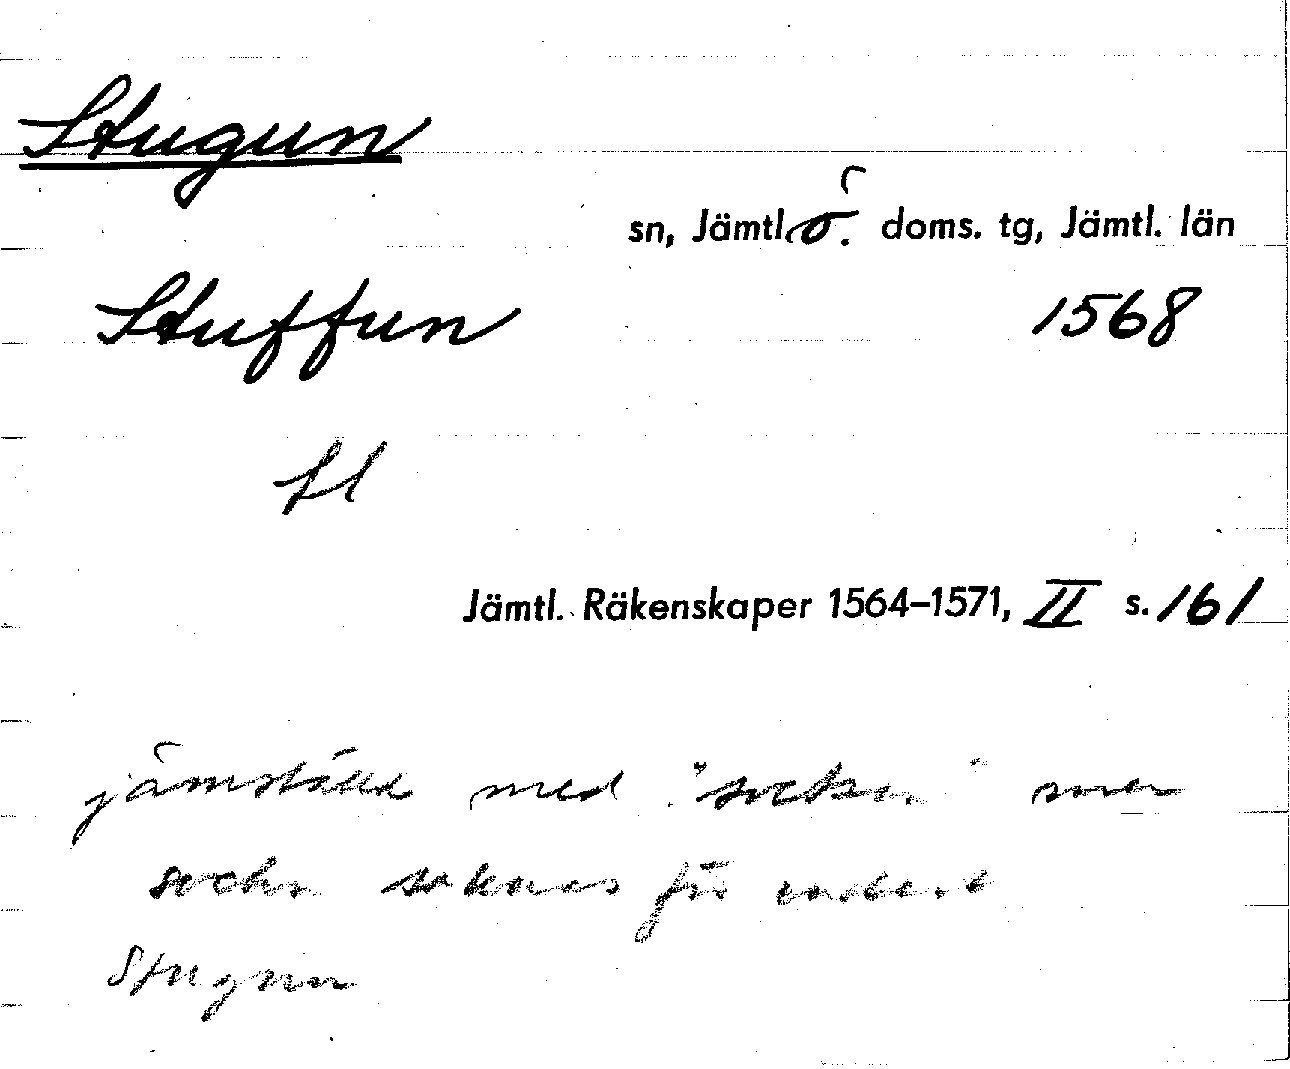 Stugun
sn, Jämtl. ö. doms. tg, Jämtl. län
Stuffun 1568
fl
Jämtl. Räkenskaper 1564–1571, II s. 161
jämställd med "socken" men
sockn saknas för endast
Stugun